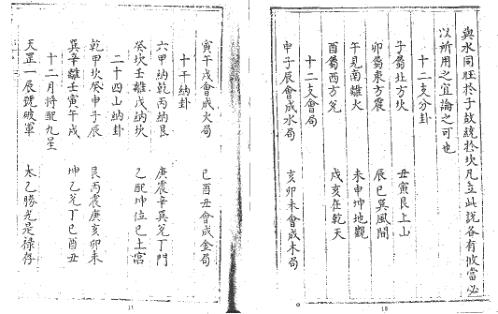 與水同旺於子故繞於坎凡立此說各有攸當必
以所用之宜論之可也
十二支分卦
子屬北方坎 丑寅艮上山
卯屬東方震 辰巳巽風間
午見南離火 未申坤地觀
酉屬西方兌 戌亥在乾天
十二支會局
申子辰會成水局 亥卯未會成木局
18
寅午戌會成火局 巳酉丑會成金局
十干納卦
六甲納乾丙納艮 庚震辛巽兌丁門
癸坎壬離戊納坎 乙配坤位己土宮
二十四山納卦
乾甲坎癸申子辰 艮丙震庚亥卯未
巽辛離壬寅午戌 坤乙兌丁巳酉丑
十二月將配九星
天罡一辰號破軍 太乙勝光是祿存